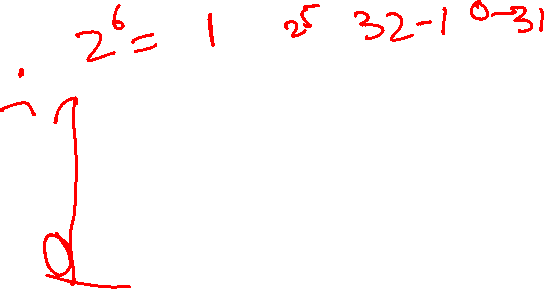 2⁶ = 1 2⁵ 32-1 0-31